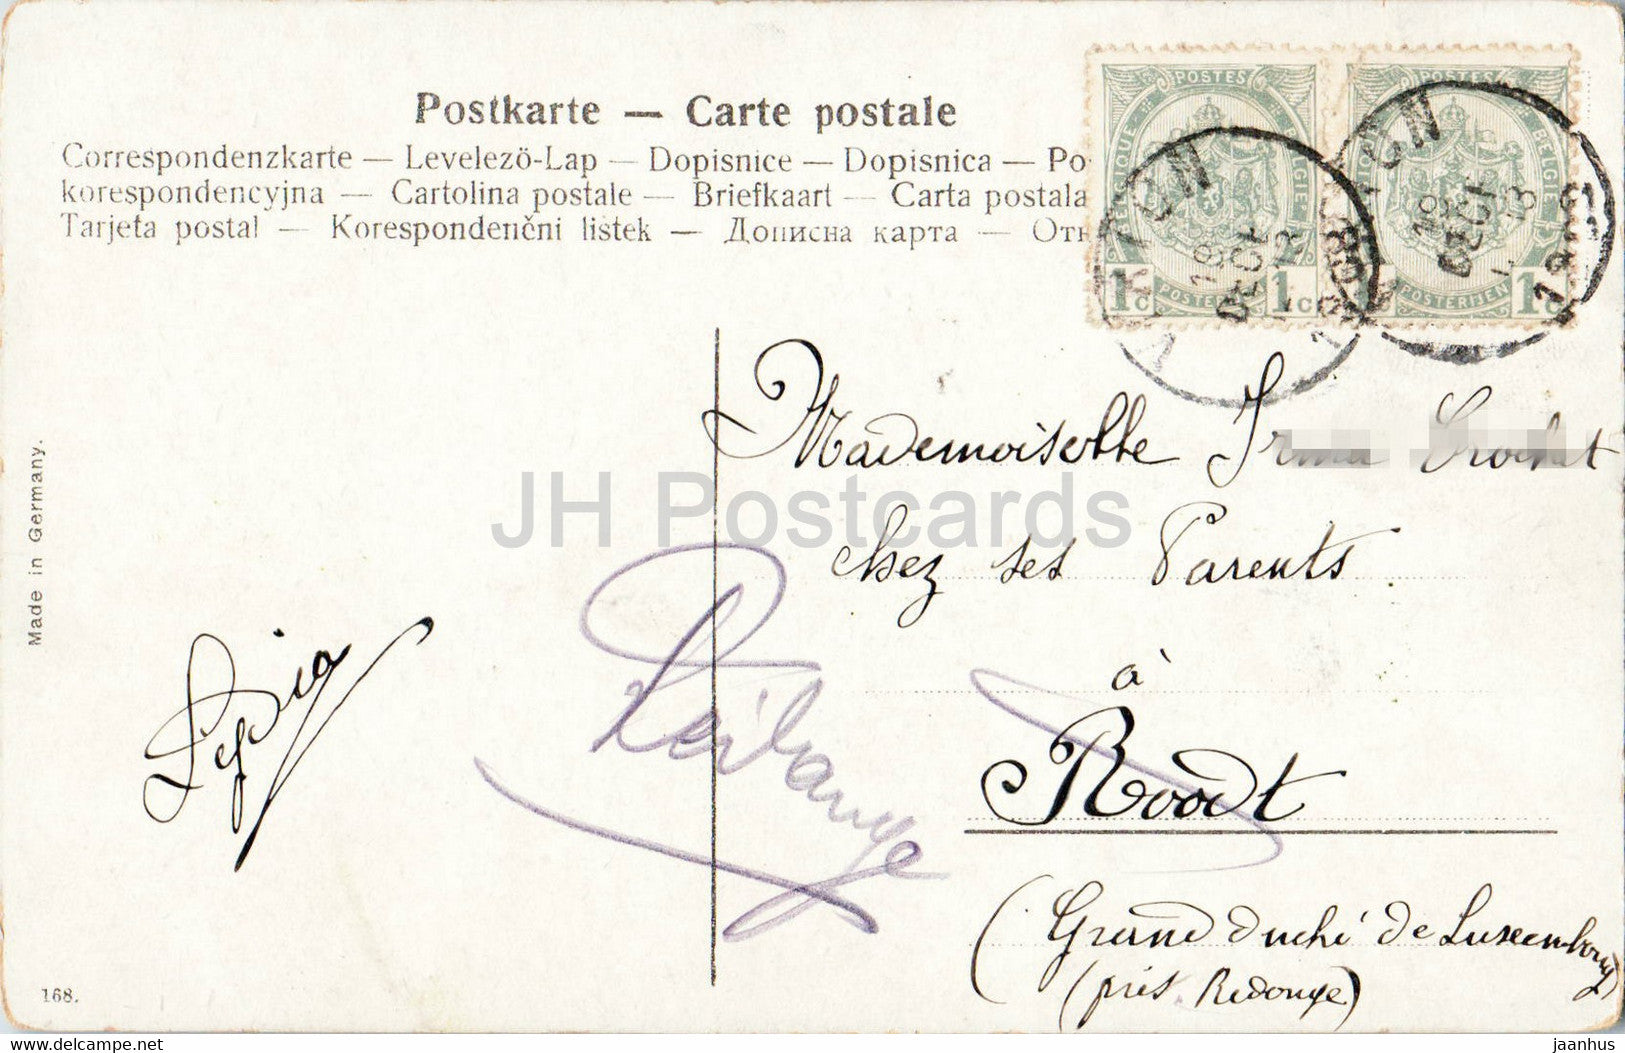 Postkarte — Carte postale
Correspondenzkarte — Levelezö-Lap — Dopisnice — Dopisnica — Po
korespondencyjna — Cartolina postale — Briefkaart — Carta postala
Tarjeta postal — Korespondenčni listek — Дописна карта — Отк
POSTES BELGIQUE BELGIE 1c POSTERIJEN 1c
POSTES BELGIQUE BELGIE POSTERIJEN 1c
18 DECE 13 1906
18 DECE 13 1906
Mademoiselle
JH Postcards
chez ses Parents
à
Roodt
(Grand Duché de Luxembourg)
(près Redange)
Made in Germany.
168.
www.delcampe.net
jaanhus